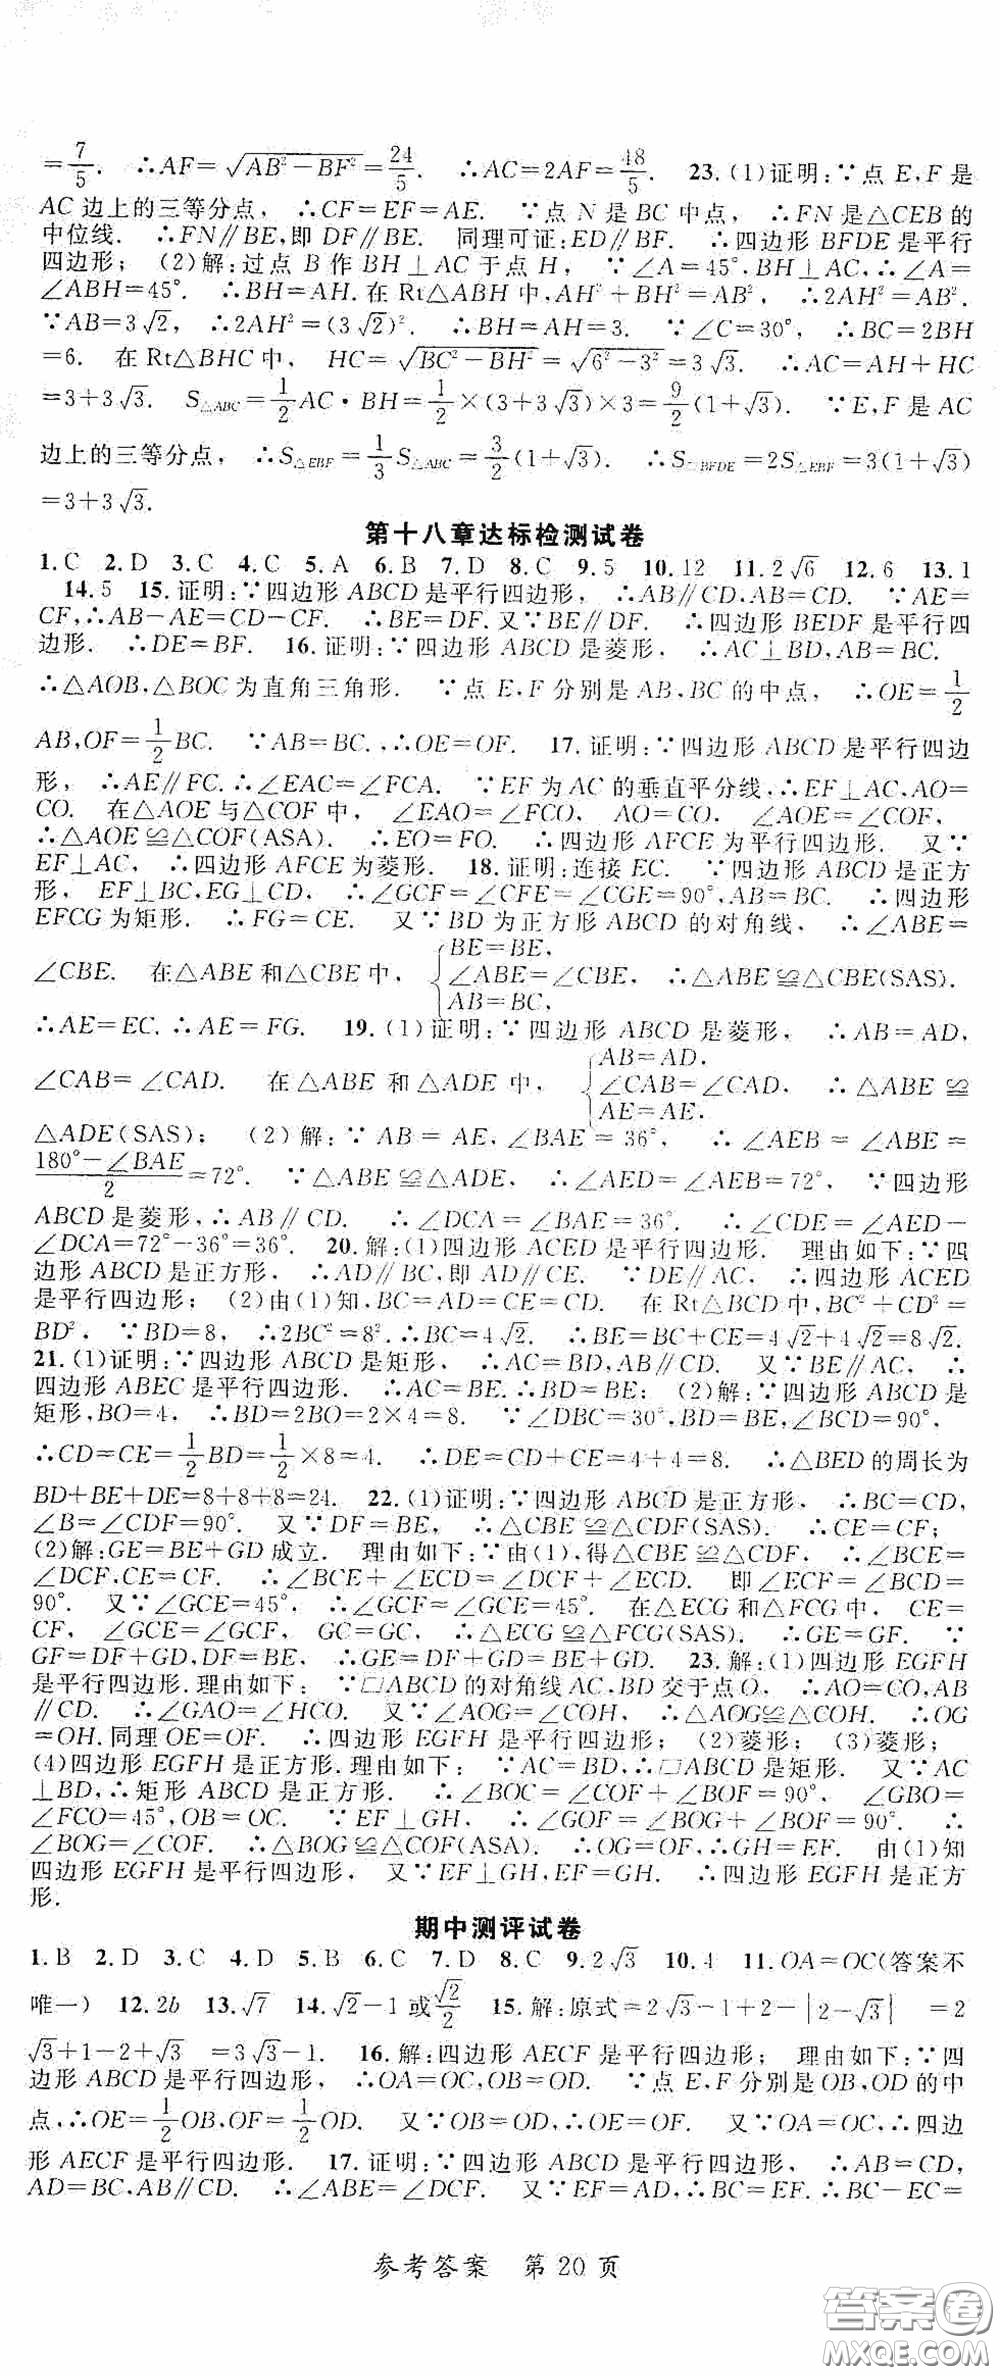 =7/5. ∴AF=√(AB²−BF²)=24/5. ∴AC=2AF=48/5. 23.(1)证明:∵点 E,F 是
AC 边上的三等分点, ∴CF=EF=AE. ∵点 N 是 BC 中点, ∴FN 是△CEB 的
中位线. ∴FN∥BE,即 DF∥BE. 同理可证:ED∥BF. ∴四边形 BFDE 是平行
四边形; (2)解:过点 B 作 BH⊥AC 于点 H, ∵∠A=45°,BH⊥AC,∴∠A=
∠ABH=45°. ∴BH=AH.在 Rt△ABH 中,AH²+BH²=AB², ∴2AH²=AB².
∵AB=3√2, ∴2AH²=(3√2)². ∴BH=AH=3. ∵∠C=30°, ∴BC=2BH
=6. 在 Rt△BHC 中, HC=√(BC²−BH²)=√(6²−3²)=3√3. ∴AC=AH+HC
=3+3√3. S△ABC=1/2AC·BH=1/2×(3+3√3)×3=9/2(1+√3). ∵E,F 是 AC
边上的三等分点, ∴S△EBF=1/3S△ABC=3/2(1+√3). ∴S▱BFDE=2S△EBF=3(1+√3)
=3+3√3.
第十八章达标检测试卷
1.C 2.D 3.C 4.C 5.A 6.B 7.D 8.C 9.5 10.12 11.2√6 12.6 13.1
14.5 15.证明:∵四边形 ABCD 是平行四边形, ∴AB∥CD,AB=CD. ∵AE=
CF,∴AB−AE=CD−CF. ∴BE=DF.又∵BE∥DF. ∴四边形 BEDF 是平行四
边形. ∴DE=BF. 16.证明:∵四边形 ABCD 是菱形, ∴AC⊥BD,AB=BC.
∴△AOB,△BOC 为直角三角形. ∵点 E,F 分别是 AB,BC 的中点, ∴OE=1/2
AB,OF=1/2BC. ∵AB=BC.,∴OE=OF. 17.证明:∵四边形 ABCD 是平行四边
形, ∴AE∥FC.∴∠EAC=∠FCA. ∵EF 为 AC 的垂直平分线,∴EF⊥AC,AO=
CO. 在△AOE 与△COF 中, ∠EAO=∠FCO, AO=CO, ∠AOE=∠COF,
∴△AOE≌△COF(ASA). ∴EO=FO. ∴四边形 AFCE 为平行四边形. 又∵
EF⊥AC, ∴四边形 AFCE 为菱形. 18.证明:连接 EC. ∵四边形 ABCD 是正方
形, EF⊥BC,EG⊥CD, ∴∠GCF=∠CFE=∠CGE=90°,AB=BC. ∴四边形
EFCG 为矩形. ∴FG=CE. 又∵BD 为正方形 ABCD 的对角线, ∴∠ABE=
∠CBE. 在△ABE 和△CBE 中, {BE=BE, ∠ABE=∠CBE, AB=BC, ∴△ABE≌△CBE(SAS).
∴AE=EC.∴AE=FG. 19.(1)证明:∵四边形 ABCD 是菱形, ∴AB=AD,
∠CAB=∠CAD. 在△ABE 和△ADE 中, {AB=AD, ∠CAB=∠CAD, AE=AE, ∴△ABE≌
△ADE(SAS); (2)解:∵AB=AE,∠BAE=36°, ∴∠AEB=∠ABE=
(180°−∠BAE)/2=72°. ∵△ABE≌△ADE, ∴∠AED=∠AEB=72°, ∵四边形
ABCD 是菱形,∴AB∥CD. ∴∠DCA=∠BAE=36°. ∴∠CDE=∠AED−
∠DCA=72°−36°=36°. 20.解:(1)四边形 ACED 是平行四边形. 理由如下:∵四
边形 ABCD 是正方形, ∴AD∥BC,即 AD∥CE. ∵DE∥AC, ∴四边形 ACED
是平行四边形; (2)由(1)知,BC=AD=CE=CD. 在 Rt△BCD 中,BC²+CD²=
BD², ∵BD=8, ∴2BC²=8².∴BC=4√2. ∴BE=BC+CE=4√2+4√2=8√2.
21.(1)证明:∵四边形 ABCD 是矩形, ∴AC=BD,AB∥CD. 又∵BE∥AC, ∴
四边形 ABEC 是平行四边形. ∴AC=BE.∴BD=BE; (2)解:∵四边形 ABCD 是
矩形,BO=4, ∴BD=2BO=2×4=8. ∵∠DBC=30°,BD=BE,∠BCD=90°,
∴CD=CE=1/2BD=1/2×8=4. ∴DE=CD+CE=4+4=8. ∴△BED 的周长为
BD+BE+DE=8+8+8=24. 22.(1)证明:∵四边形 ABCD 是正方形, ∴BC=CD,
∠B=∠CDF=90°. 又∵DF=BE, ∴△CBE≌△CDF(SAS). ∴CE=CF;
(2)解:GE=BE+GD 成立. 理由如下:∵由(1),得△CBE≌△CDF, ∴∠BCE
=∠DCF,CE=CF. ∴∠BCE+∠ECD=∠DCF+∠ECD. 即∠ECF=∠BCD=
90°. 又∵∠GCE=45°, ∴∠GCF=∠GCE=45°. 在△ECG 和△FCG 中, CE=
CF, ∠GCE=∠GCF, GC=GC, ∴△ECG≌△FCG(SAS). ∴GE=GF. ∵
GF=DF+GD,DF=BE, ∴GE=DF+GD=BE+GD. 23.解:(1)四边形 EGFH
是平行四边形.理由如下: ∵▱ABCD 的对角线 AC,BD 交于点 O, ∴AO=CO,AB
∥CD. ∴∠GAO=∠HCO. 又∵∠AOG=∠COH, ∴△AOG≌△COH. ∴OG
=OH.同理 OE=OF. ∴四边形 EGFH 是平行四边形; (2)菱形; (3)菱形;
(4)四边形 EGFH 是正方形.理由如下: ∵AC=BD,∴▱ABCD 是矩形. 又∵AC
⊥BD,∴矩形 ABCD 是正方形. ∴∠BOC=∠COF+∠BOF=90°, ∠GBO=
∠FCO=45°,OB=OC. ∵EF⊥GH, ∴∠GOF=∠BOG+∠BOF=90°. ∴
∠BOG=∠COF. ∴△BOG≌△COF(ASA). ∴OG=OF,∴GH=EF. 由(1)知
四边形 EGFH 是平行四边形, 又∵EF⊥GH,EF=GH. ∴四边形 EGFH 是正方
形.
期中测评试卷
1.B 2.D 3.C 4.D 5.B 6.C 7.D 8.C 9.2√3 10.4 11.OA=OC(答案不
唯一) 12.2b 13.√7 14.√2−1或√2/2 15.解:原式=2√3−1+2−|2−√3| =2
√3+1−2+√3 =3√3−1. 16.解:四边形 AECF 是平行四边形; 理由如下:∵四
边形 ABCD 是平行四边形, ∴OA=OC,OB=OD. ∵点 E,F 分别是 OB,OD 的中
点,∴OE=1/2OB,OF=1/2OD. 又∵OB=OD,∴OE=OF. 又∵OA=OC,∴四边
形 AECF 是平行四边形. 17.证明:∵四边形 ABCD 是平行四边形, ∴AB=CD,
AD=BC,AB∥CD. ∴∠ABE=∠DCF. 又∵EF=AD,∴BC=EF.∴BC−EC=
参考答案 第 20 页
答案卷
MXQE.COM